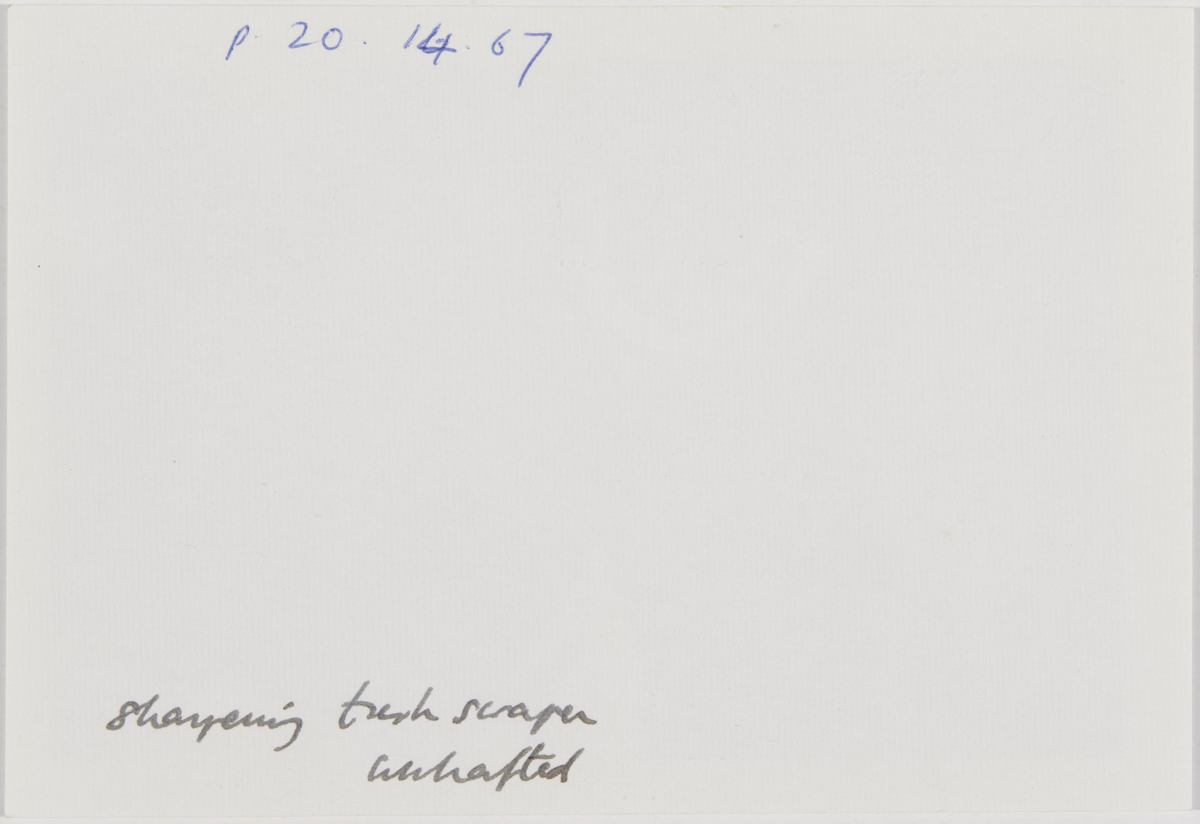 p. 20. 14. 67
sharpening tusk scraper
unhafted